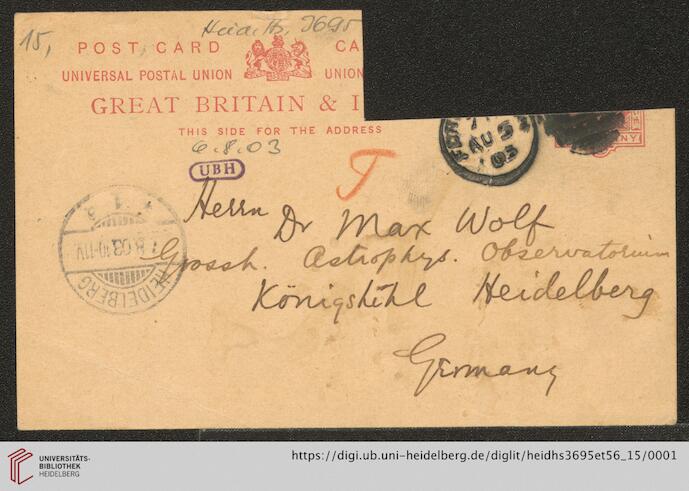 15,
Heid. Hs. 3695
POST CARD CA
UNIVERSAL POSTAL UNION UNION
GREAT BRITAIN & I
THIS SIDE FOR THE ADDRESS
6.8.03
UBH
T
AU 5
03
NY
Herrn Dr Max Wolf
Grossh. Astrophys. Observatorium
Königstuhl Heidelberg
Germany
HEIDELBERG
8.03.10-11V
1
UNIVERSITÄTS-
BIBLIOTHEK
HEIDELBERG
https://digi.ub.uni-heidelberg.de/diglit/heidhs3695et56_15/0001